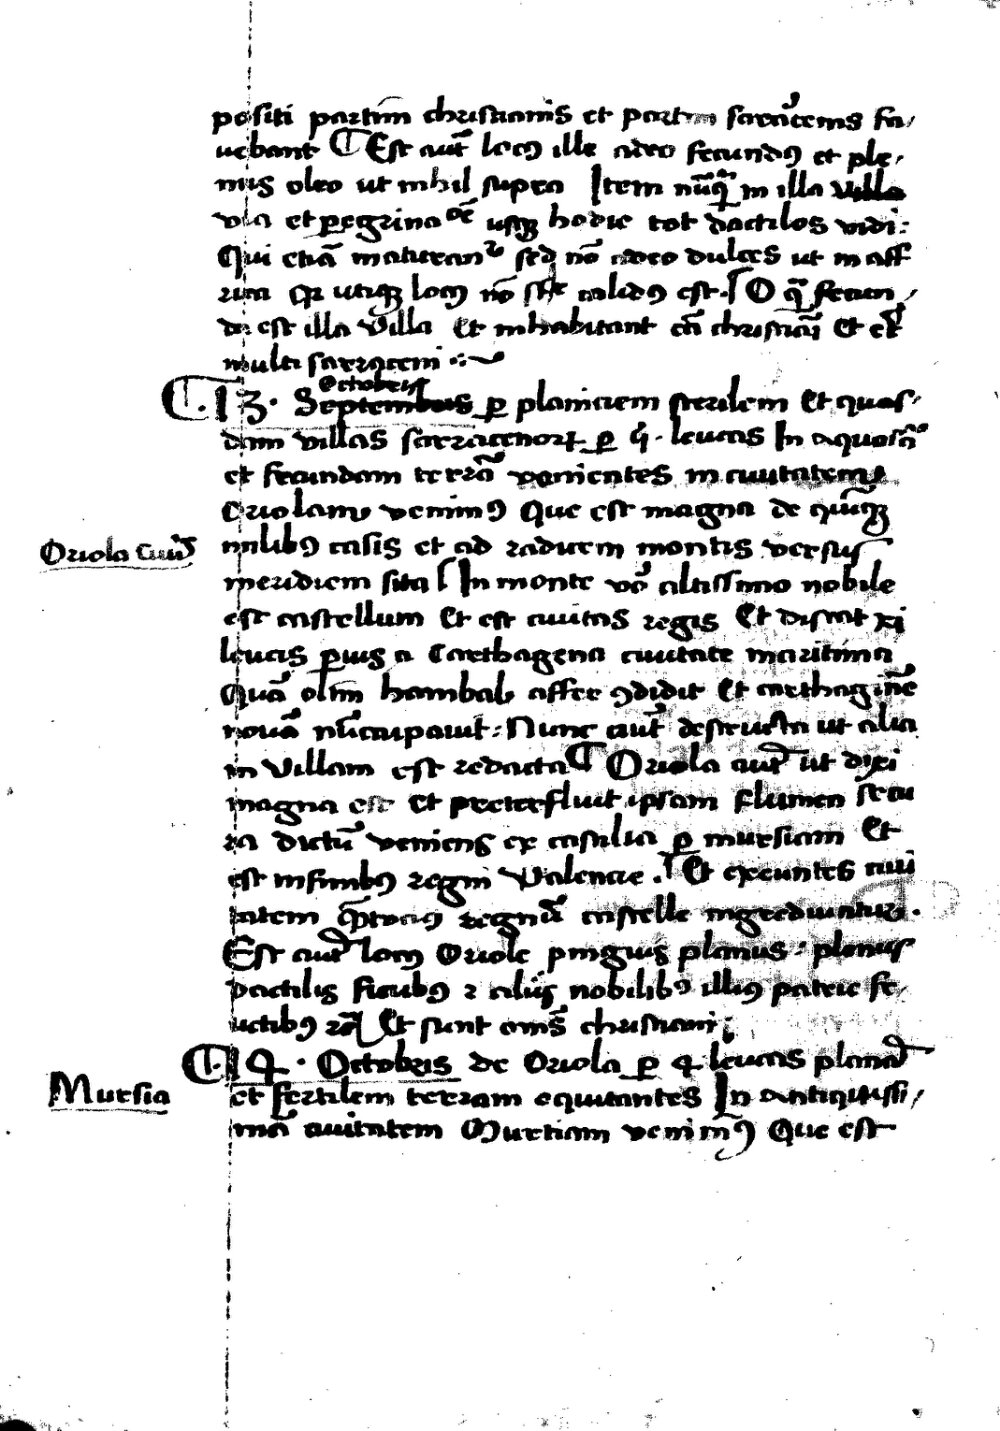 positi partim christianis et partim saracenis fa/
uebant Est aut locꝯ ille adeo fecundꝯ et ple/
nus oleo ut nihil supra Item nūq̄ in illa villa
via et peregrinaoē usqꝫ hodie tot dactilos vidi:
Qui etiā maturant sed nō adeo dulces ut in aff
rica qꝛ utiqꝫ locꝯ nō sic calidꝯ est. O q̄ fecun/
da est illa Villa Et inhabitant eā christiāi Et
multi sarraceni
13. Septembris Octobris ꝑ planiciem sterilem Et quas/
dam villas sarracenorꝝ ꝑ q̄. leucas In aquosā
et fecundam terrā venientes in ciuitatem
Oriolam venimꝯ Que est magna de quinqꝫ
milibꝯ casis et ad radicem montis versus
Oriola Ciuit
meridiem sita In monte vō altissimo nobile
est castellum Et est ciuitas regis Et distat xi
leucis ꝑuis a Carthagena ciuitate maritima
Quā olim hanibal affer ꝯdidit Et carthaginē
nouā nūcupauit: Nunc aut destructa ut alia
in Villam est redacta Oriola aut ut dixi
magna est Et preterfluit ipsam flumen secu
ra dictū veniens ex castilia ꝑ mursiam Et
est in finibꝯ regni Valencie. Et exeuntes ciui
tatem ꝓtinus regnū castelle ingrediuntur.
Est aut locꝯ Oriole pinguis planus: plenus
dactilis ficubꝯ ⁊ aliis nobilibꝯ illiꝯ patrie fr/
uctibꝯ Et sunt omēs christiani
14. Octobris de Oriola ꝑ 4 leucas planā
Mursia
et fertilem terram equitantes In antiquissi/
mā ciuitatem Murtiam venimꝯ Que est